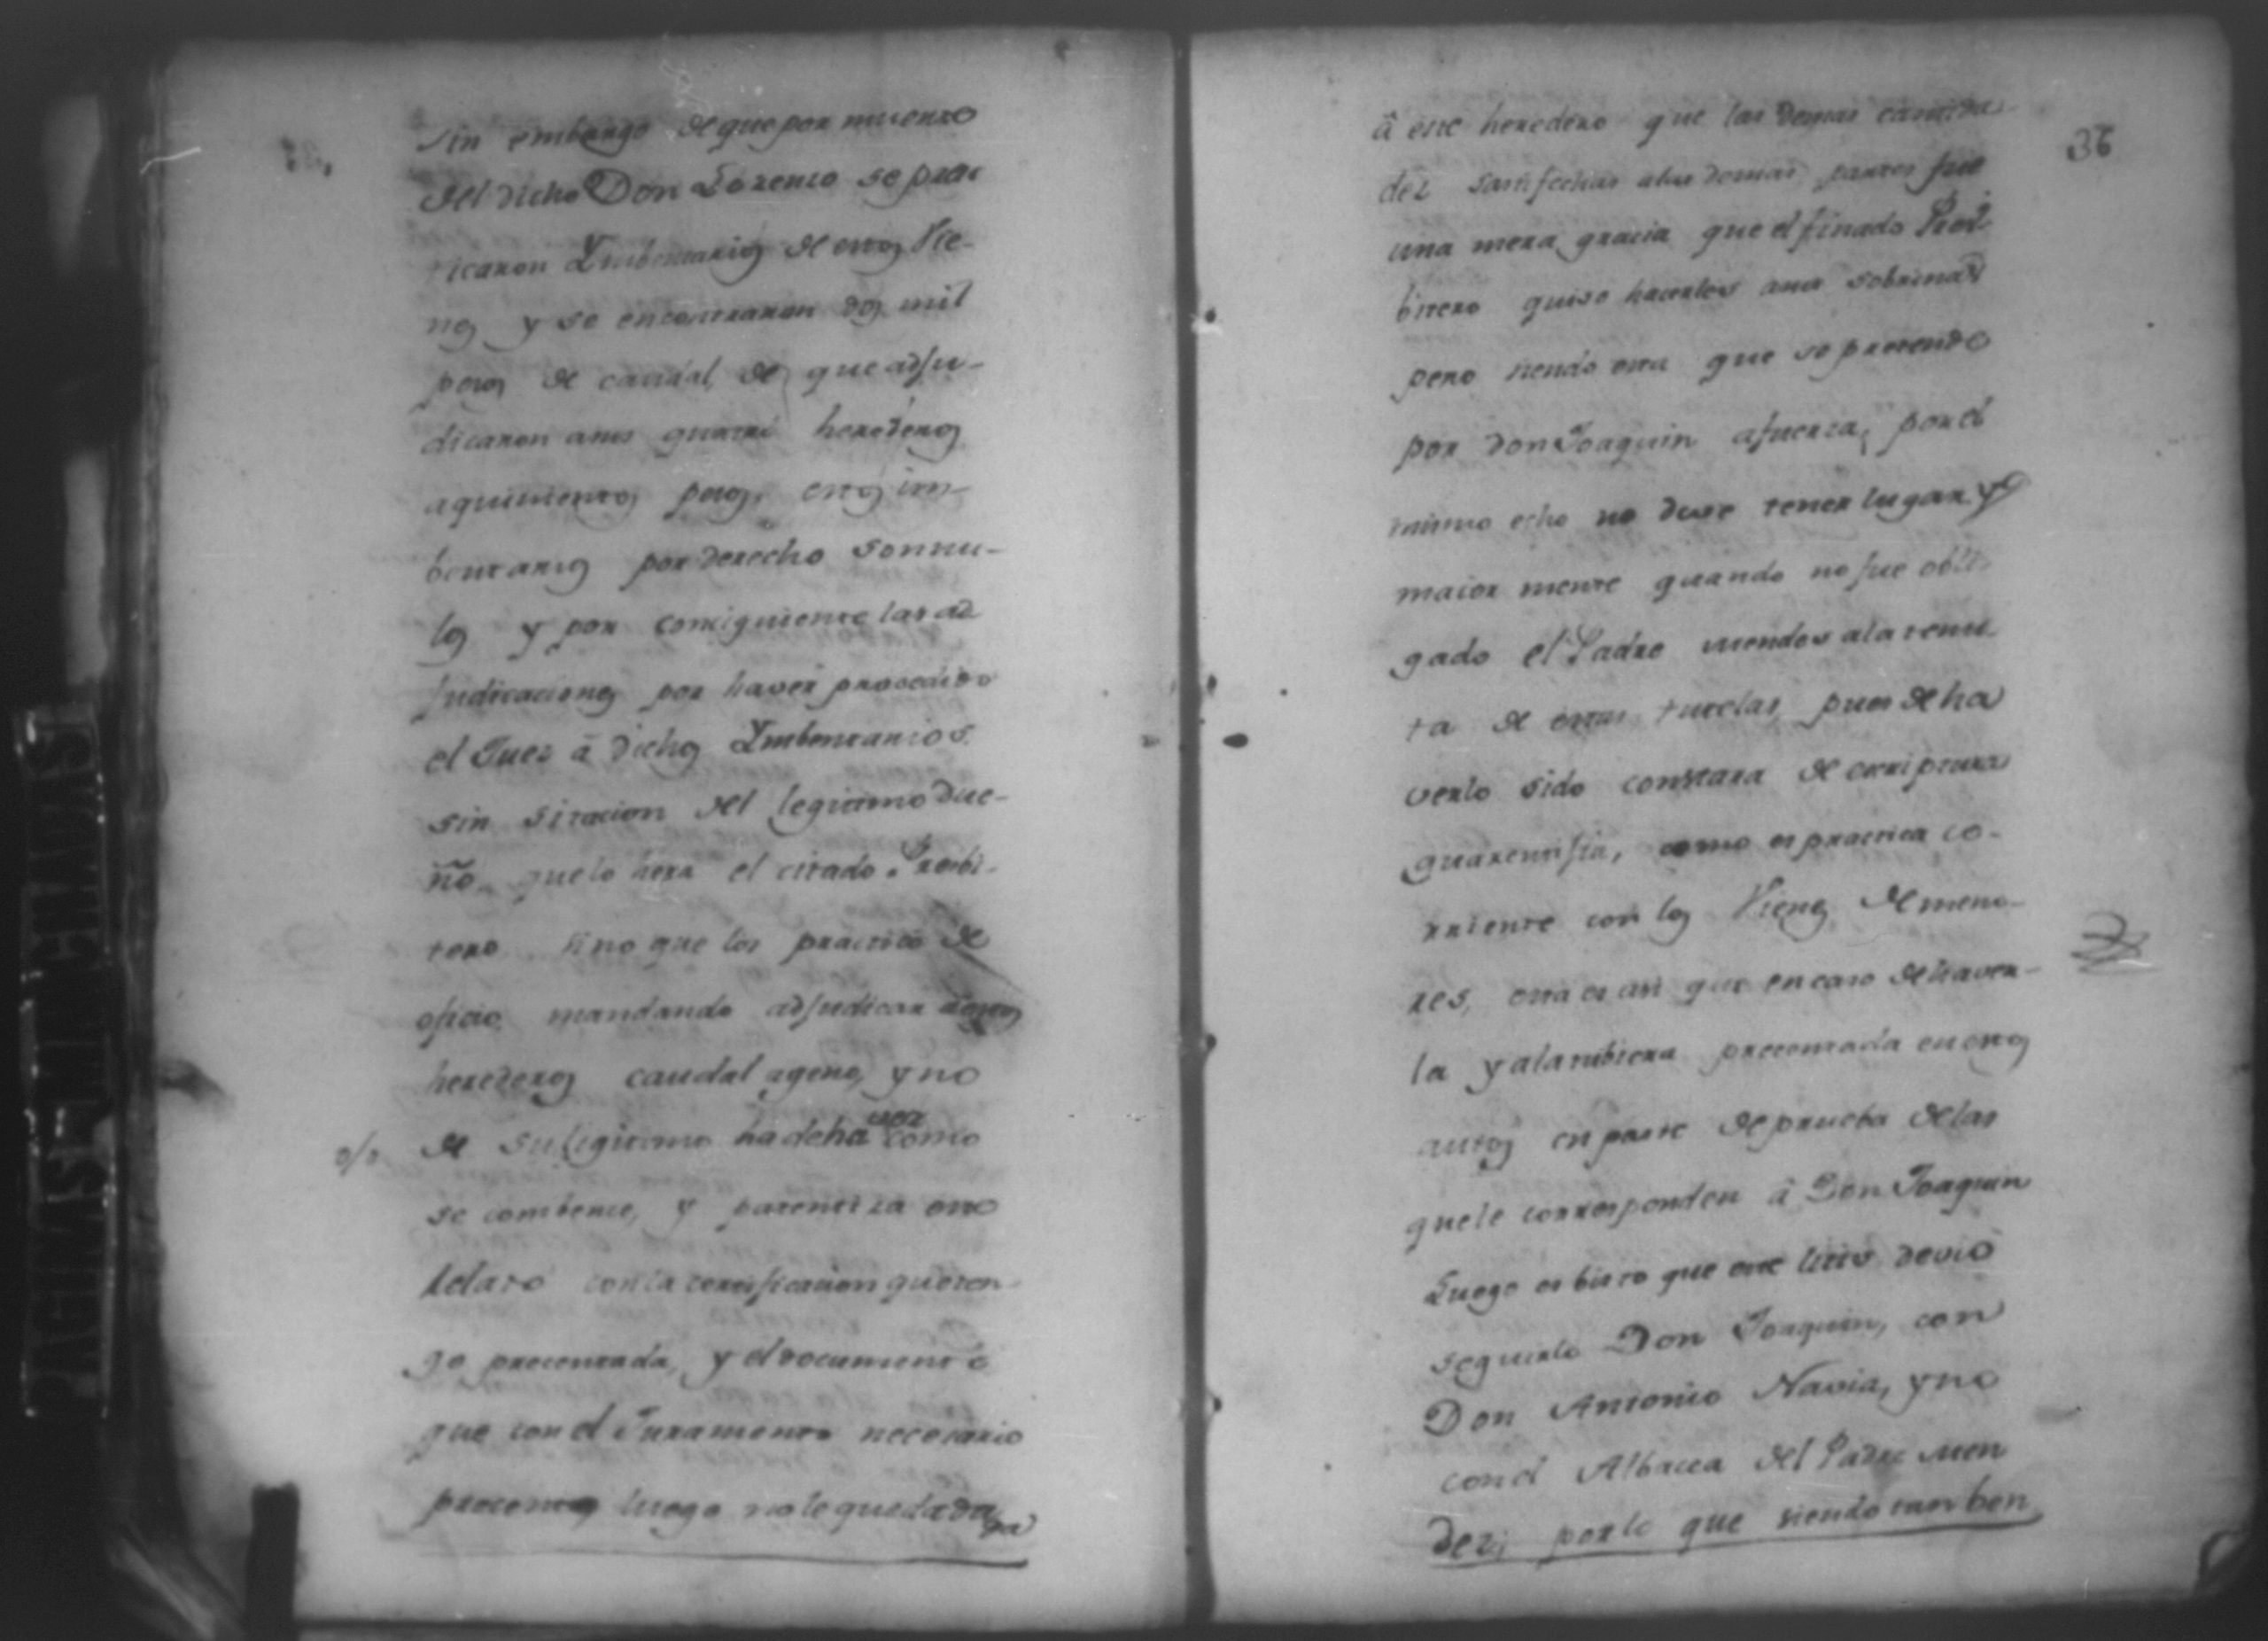 sin embargo de que por muerte
del dicho Don Lorenzo se prac
ticaron Imbentarios de estos Vie-
nes y se encontraron dos mil
pesos de caudal de que adju-
dicaron a mis quatro herederos
a quinientos pesos, estos im-
bentarios por derecho son nu-
los y por consiguiente las ad
judicaciones por haver procedido
el Juez â dichos Imbentarios
sin sitacion del legitimo Due-
ño que lo hera el citado Presbi-
tero sino que los practicó de
oficio mandando adjudicar a
herederos caudal ageno, y no
de su legitimo ha de haver como
se combence, y patentiza esto
claro con la certificacion que ten
go presentada, y el documento
que con el Juramento necesario
presento luego no le queda da
36
â este heredero que las demas cantida
dez satisfechas a las demas partes fue
una mera gracia que el finado Pres
bitero quiso hacerles a sus sobrinas
pero siendo esta que se pretende
por don Joaquin a fuerza, por el
mismo echo no deve tener lugar y
maior mente quando no fue obli
gado el Padre Mendes a la remi
ta de estas tutelas, pues de ha
verlo sido constara de escriptura
guarentisia, como es practica co-
rriente con los Vienes de meno-
res, esta es asi que en caso de haver-
la ya la tubiera presentada en estos
autos en parte de prueba de las
que le corresponden â Don Joaquin
Luego es bisto que este litis devio
seguirlo Don Joaquin, con
Don Antonio Navia, y no
con el Albacea del Padre Men
dez; por lo que siendo tambien